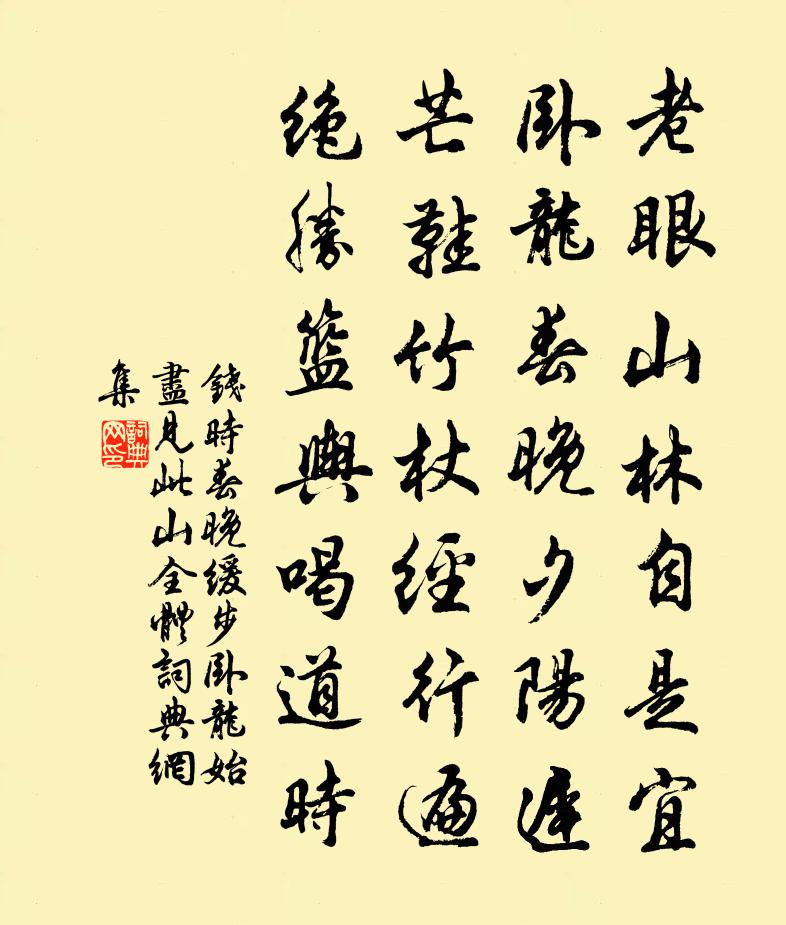 老眼山林自是宜
卧龍春晚夕陽遲
芒鞋竹杖經行遍
绝勝籃輿喝道時
錢時春晚缓步卧龍始
盡見此山全體詞典網
集
詞典
网印